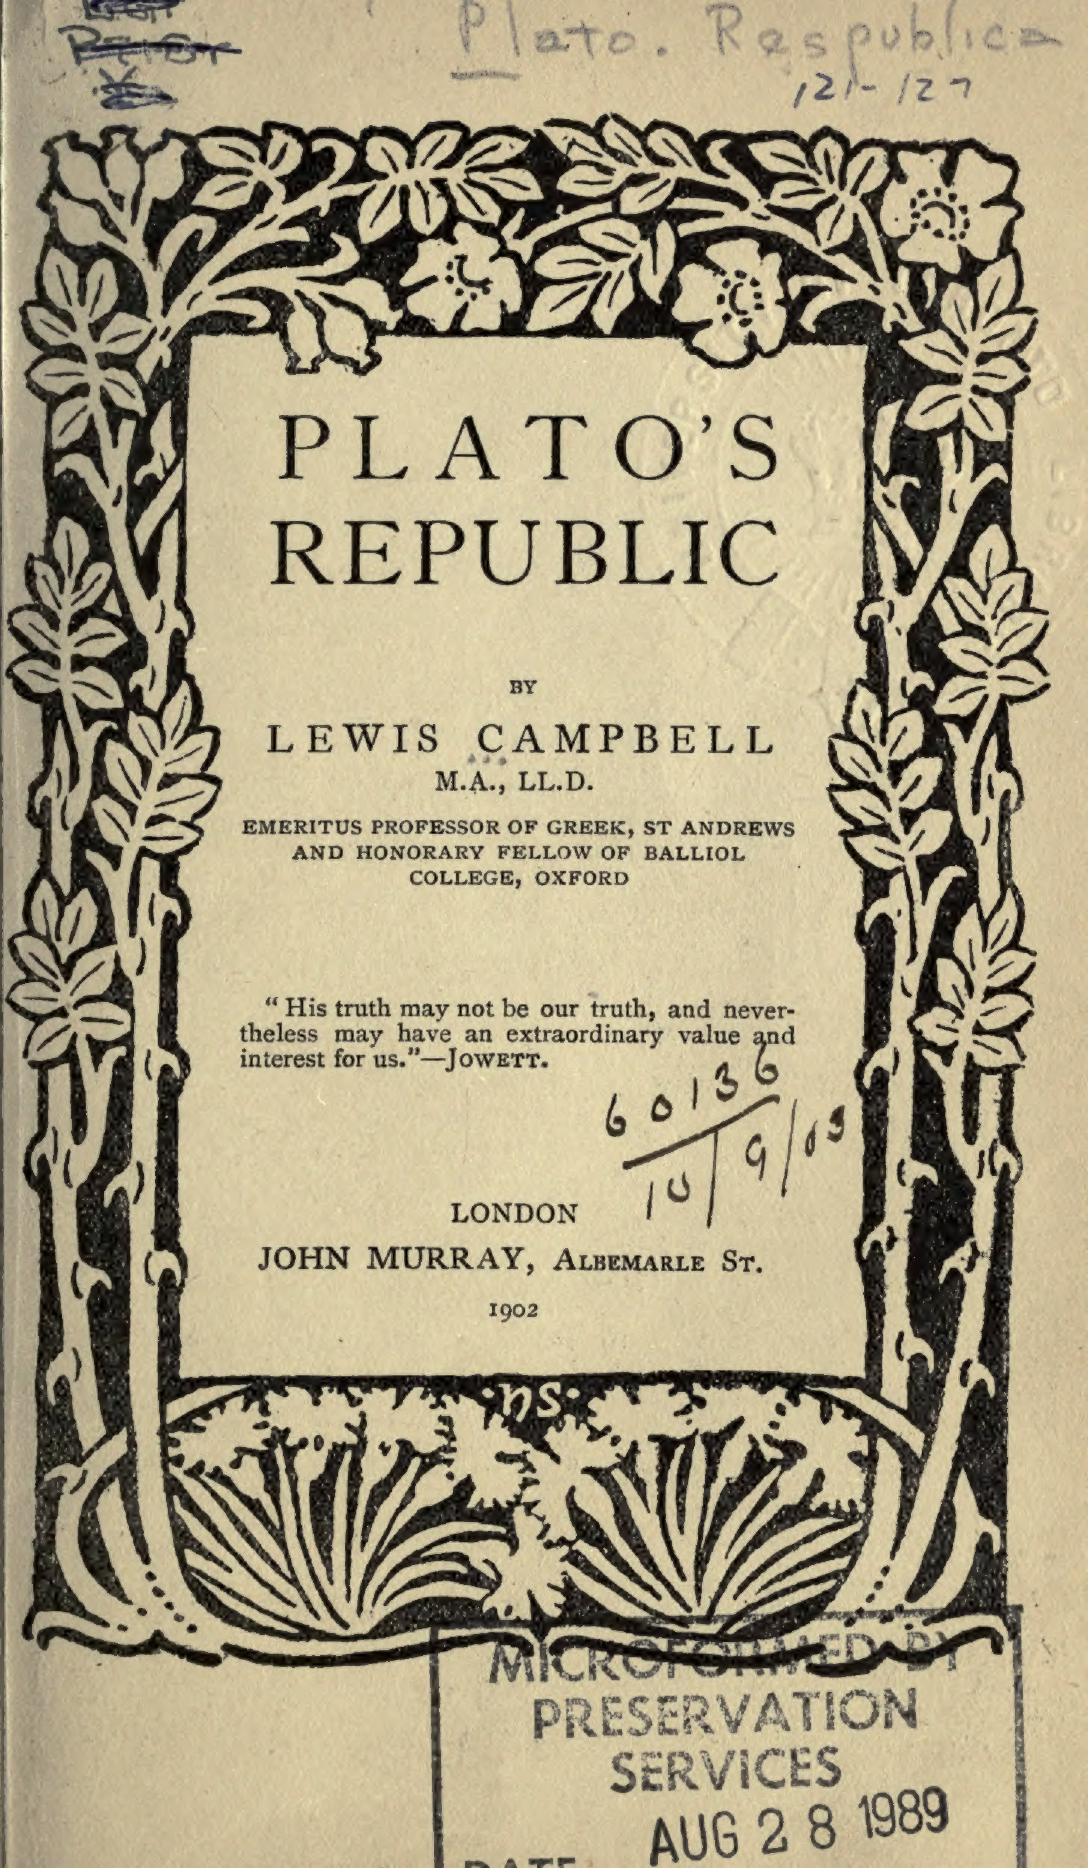 Plato. Respublica
121-127
PLATO'S
REPUBLIC
BY
LEWIS CAMPBELL
M.A., LL.D.
EMERITUS PROFESSOR OF GREEK, ST ANDREWS
AND HONORARY FELLOW OF BALLIOL
COLLEGE, OXFORD
“ His truth may not be our truth, and never-
theless may have an extraordinary value and
interest for us.”—JOWETT.
60136
10/9/03
LONDON
JOHN MURRAY, ALBEMARLE ST.
1902
MICROFORMED BY
PRESERVATION
SERVICES
AUG 28 1989
DATE